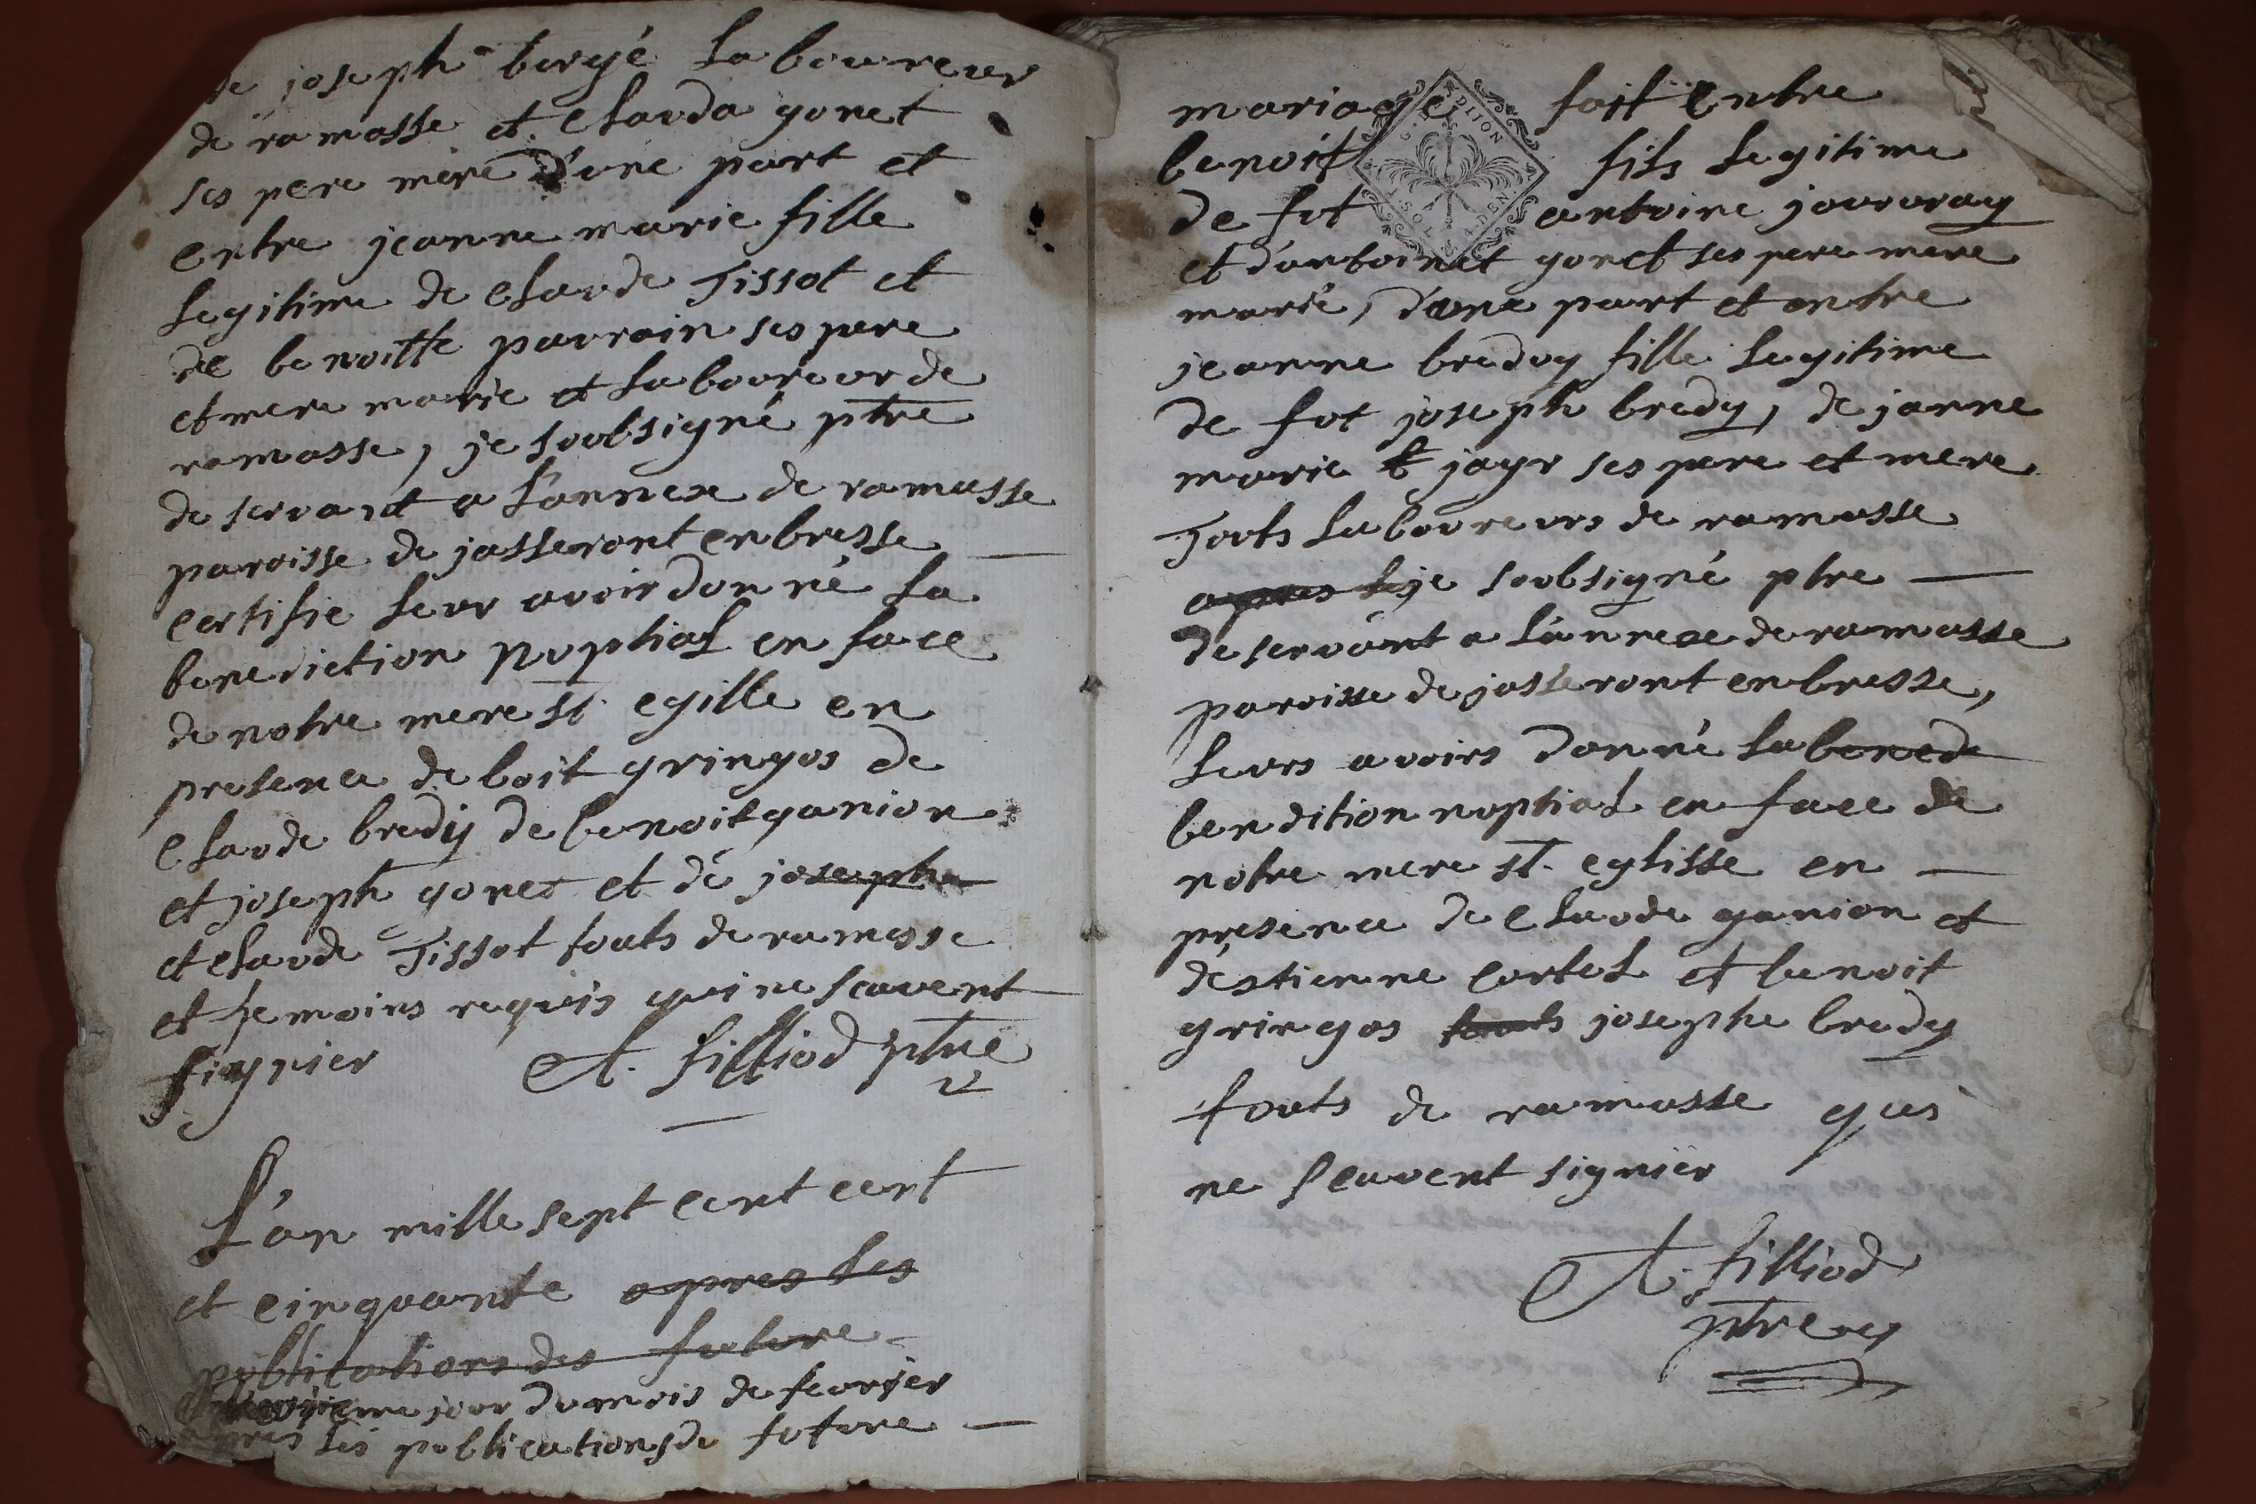 de joseph bergé laboureur
de ramasse et clauda gonet
ses pere mere d'une part et
entre jeanne marie fille
legitime de claude Tissot et
de benoitte parrain ses pere
et mere marié et laboureur de
ramasse, je soubsigné ptre
deservant a l'annexe de ramasse
paroisse de jasseront en bresse
certifie leur avoir donné la
benediction nuptial en face
de notre mere st. egille en
presence de boit gringos de
claude bredy de benoit ganion
et joseph gonet et de joseph
et claude Tissot touts de ramasse
et temoins requis qui ne scavent
signier A. filliod ptre
L'an mille sept cent cent
et cinquante apres les
publications des future
jour du mois de fevrier
apres les publications de future
mariage fait entre
benoit fils legitime
de fut antoine jouvray
et d'antoinet gonet ses pere mere
marié, d'une part et entre
jeanne bredy fille legitime
de fut joseph bredy, de janne
marie jayr ses pere et mere
Touts laboureurs de ramasse
apres les je soubsigné ptre
deservant a l'annexe de ramasse
paroisse de jasseront en bresse,
leurs avoirs donné la bened
bendition nuptial en face de
notre mere st. eglisse en
presence de claude ganion et
d'estienne cortel et benoit
gringos touts josephe bredy
touts de ramasse qui
ne scavent signier
A. filliod
ptre